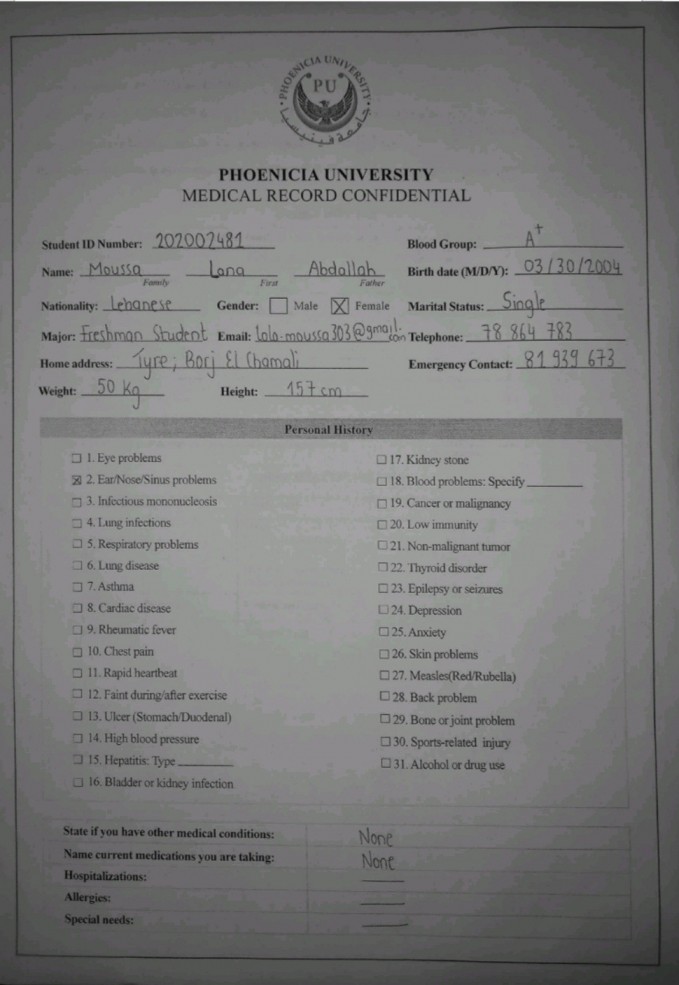 PHOENICIA UNIVERSITY
PU
جامعة فينيسيا
PHOENICIA UNIVERSITY
MEDICAL RECORD CONFIDENTIAL
Student ID Number: 202002481 Blood Group: A+
Name: Moussa Lana Abdallah Birth date (M/D/Y): 03/30/2004
Family First Father
Nationality: Lebanese Gender: ☐ Male ☒ Female Marital Status: Single
Major: Freshman Student Email: lolo.moussa303@gmail.com Telephone: 78 864 783
Home address: Tyre; Borj El Chamali Emergency Contact: 81 939 673
Weight: 50 Kg Height: 157 cm
Personal History
☐ 1. Eye problems
☒ 2. Ear/Nose/Sinus problems
☐ 3. Infectious mononucleosis
☐ 4. Lung infections
☐ 5. Respiratory problems
☐ 6. Lung disease
☐ 7. Asthma
☐ 8. Cardiac disease
☐ 9. Rheumatic fever
☐ 10. Chest pain
☐ 11. Rapid heartbeat
☐ 12. Faint during/after exercise
☐ 13. Ulcer (Stomach/Duodenal)
☐ 14. High blood pressure
☐ 15. Hepatitis: Type ________
☐ 16. Bladder or kidney infection
☐ 17. Kidney stone
☐ 18. Blood problems: Specify ________
☐ 19. Cancer or malignancy
☐ 20. Low immunity
☐ 21. Non-malignant tumor
☐ 22. Thyroid disorder
☐ 23. Epilepsy or seizures
☐ 24. Depression
☐ 25. Anxiety
☐ 26. Skin problems
☐ 27. Measles(Red/Rubella)
☐ 28. Back problem
☐ 29. Bone or joint problem
☐ 30. Sports-related injury
☐ 31. Alcohol or drug use
State if you have other medical conditions: None
Name current medications you are taking: None
Hospitalizations: ____
Allergies: ____
Special needs: ____